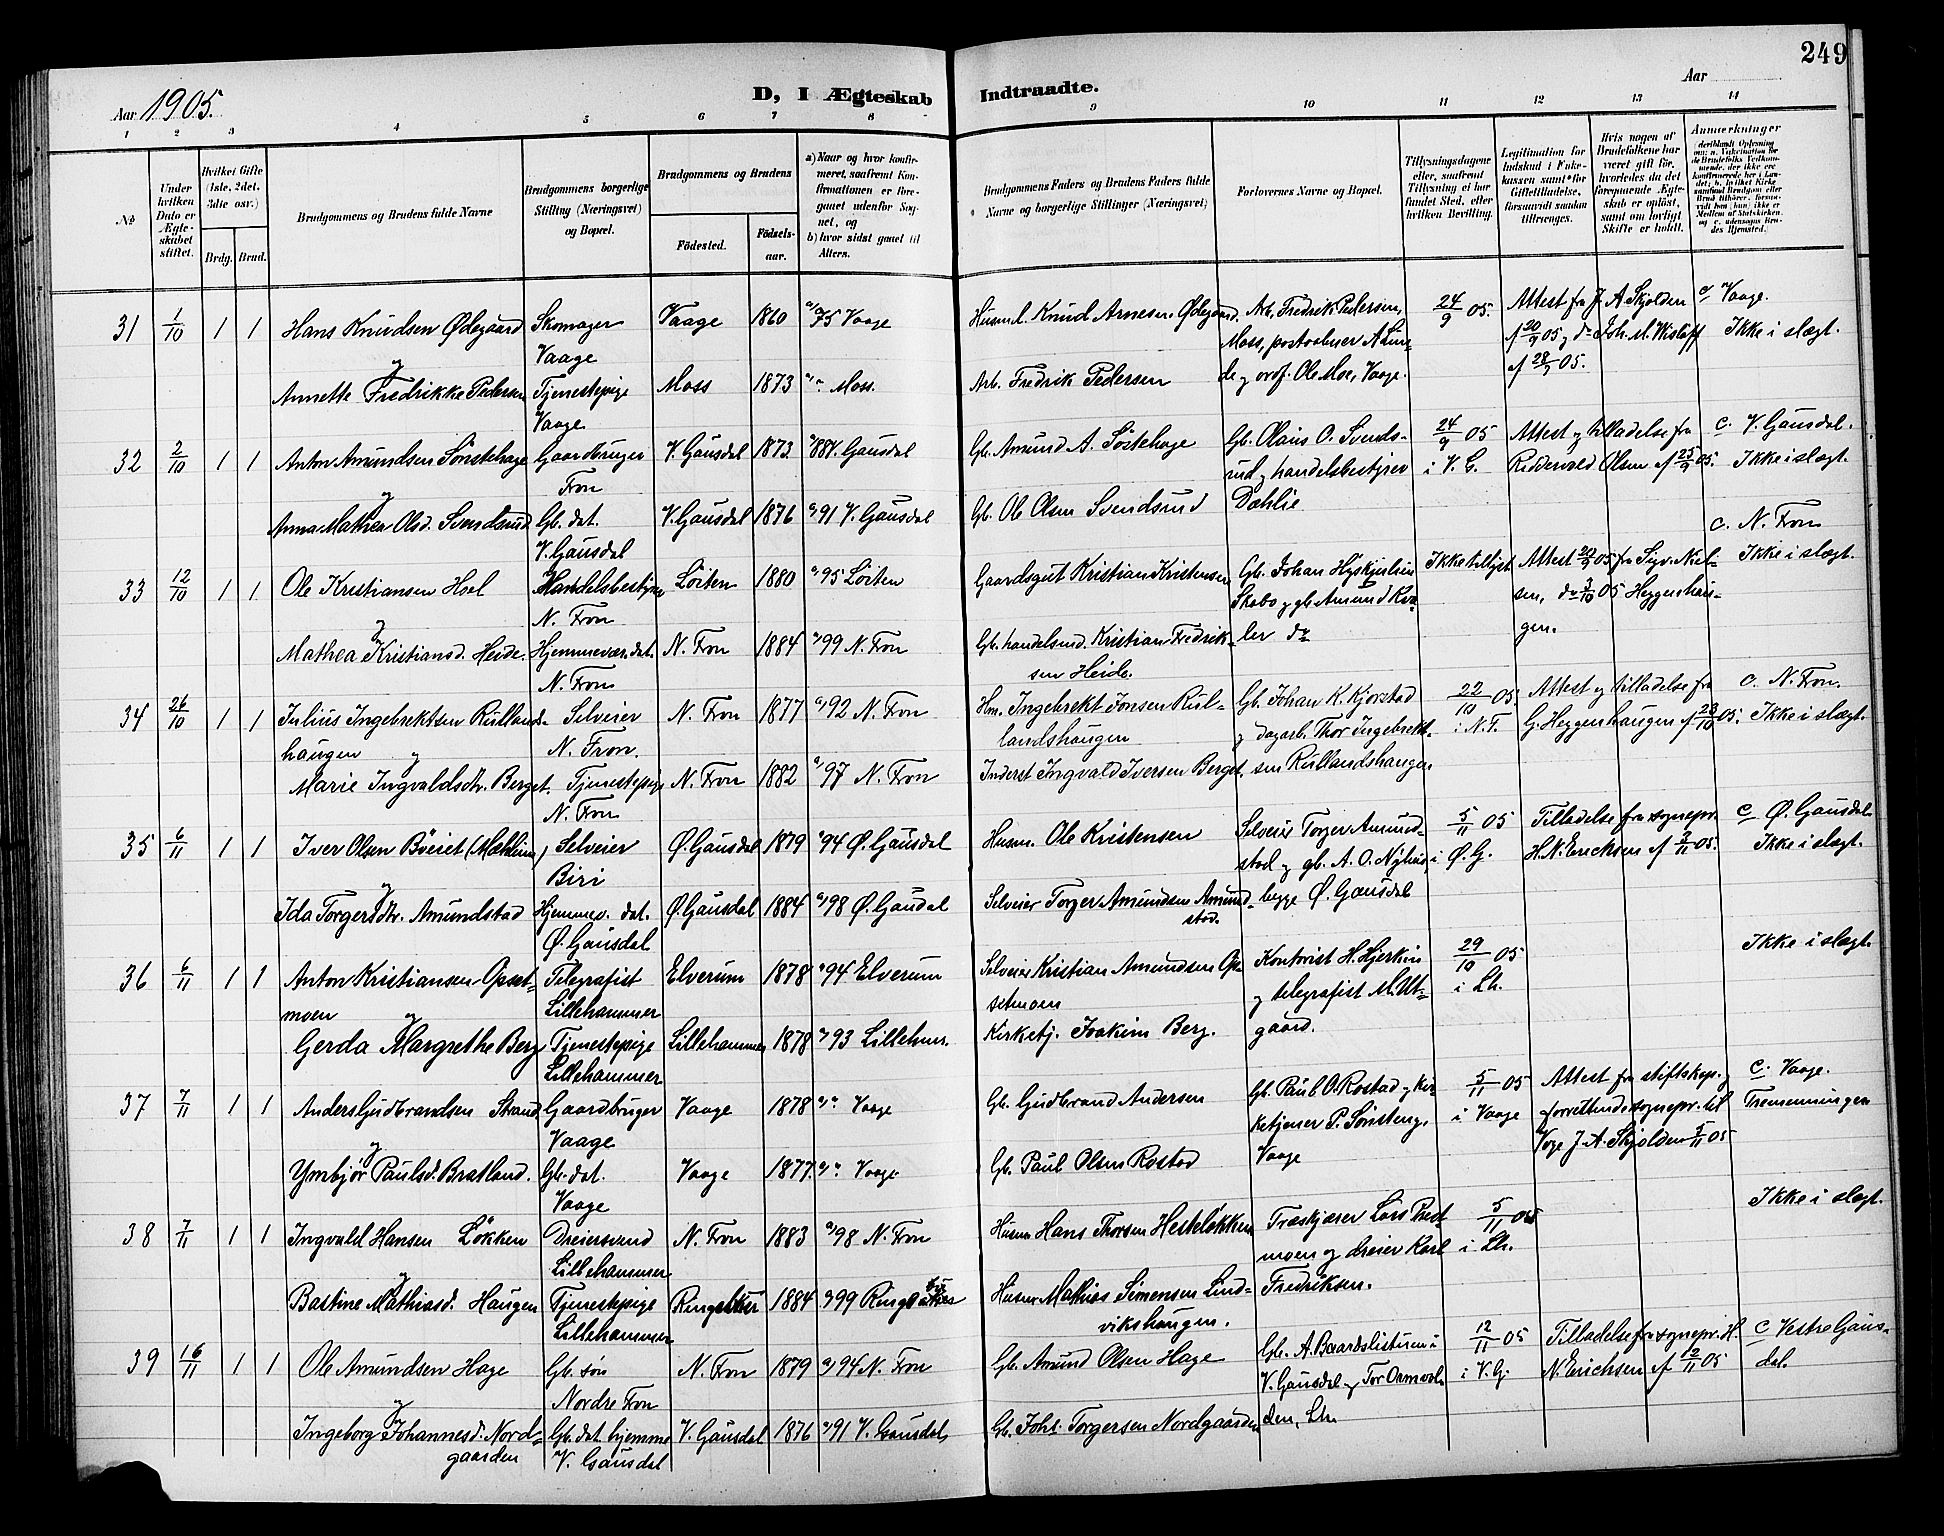 249
Aar 1905.
D, I Ægteskab Indtraadte.
Aar
1 2 3 4 5 6 7 8 9 10 11 12 13 14
No
Under hvilken Dato er Ægteskabet stiftet.
Hvilket Gifte (1ste, 2det, 3die osv.)
Brdg. Brud.
Brudgommens og Brudens fulde Navne
Brudgommens borgerlige Stilling (Næringsvei) og Bopæl.
Brudgommens og Brudens
Födested. Födsels-aar.
a) Naar og hvor konfirmeret, saafremt Konfirmationen er foregaaet udenfor Sognet, og
b) hvor sidst gaaet til Alters.
Brudgommens Faders og Brudens Faders fulde Navne og borgerlige Stillinger (Næringsvei)
Forlovernes Navne og Bopæl.
Tillysningsdagene eller, saafremt Tillysning ei har fundet Sted, efter hvilken Bevilling.
Legitimation for Indskud i Enkekassen samt for Giftetilladelse, forsaavidt saadan tiltrænges.
Hvis nogen af Brudefolkene har været gift för, hvorledes da det foregaaende Ægteskab er oplöst, samt om lovligt Skifte er holdt.
Anmærkninger
31 1/10 1 1 Hans Knudsen Ødegaard Skomager Vaage 1860 75 Vaage Husm. Knud Arnesen Ødegaard. Arb. Fredrik Pedersen, 24/9 05. Attest fra J. A. Skjolden c Vaage.
Vaage Moss, postaabner A Lun- af 20/9 05 og do Joh. M. Wisløff Ikke i slægt.
og
Annette Fredrikke Pedersen Tjenestepige Moss 1873 Moss. Arb. Fredrik Pedersen de og Ole Moe, Vaage. af 28/9 05.
Vaage
32 2/10 1 1 Anton Amundsen Sönstehage Gaardbruger V. Gausdal 1873 88 V. Gausdal Gb. Amund A. Söstehage Gb. Olaus O. Svends- 24/9 05 Attest og tilladelse fra c. V. Gausdal.
Fron rud og handelsbestyrer i V. G. Ridderwold Olsen af 25/9 05. Ikke i slægt.
og
Anna Mathea Olsd. Svendsrud Gb. dat. V. Gausdal 1876 91 V. Gausdal Gb. Ole Olsen Svendsrud Dæhlie
V. Gausdal c. N. Fron
33 12/10 1 1 Ole Kristiansen Hoel Handelsbestyrer Löiten 1880 95 Löiten Gaardsgut Kristian Kristensen Gb. Johan Ikke tillyst Attest 05 fra Sigv. Niel- Ikke i slægt.
N. Fron Skabo og gb. Amund Kva- sen, do 3/10 05 Heggenhau-
og
Mathea Kristiansd. Heide. Hjemmevær. dat. N. Fron 1884 99 N. Fron Gb. handelsmd. Kristian Fredrik- ler do gen.
N. Fron sen Heide.
34 26/10 1 1 Julius Ingebrektsen Rullands- Selveier N. Fron 1877 92 N. Fron Hm. Ingebrekt Jonsen Rul- Gb. Johan K. Kjorstad 22/10 05. Attest og tilladelse fra c. N. Fron.
haugen og N. Fron. landshaugen og dagarb. Thor Ingebrekt- i N. F. G. Heggenhaugen af 23/10 05. Ikke i slægt.
Marie Ingvaldsdtr. Berget. Tjenestepige N. Fron 1882 97 N. Fron Inderst Ingvald Iversen Berget. sen Rullandshaugen
N. Fron
35 6/11 1 1 Iver Olsen Böeiet (Mæhlum) Selveier Ø. Gausdal 1879 94 Ø. Gausdal Husm. Ole Kristensen Selveier Torger Amund- 5/11 05 Tilladelse fra sognepr. c Ø. Gausdal
Biri stad og gb. A. O. Nyhus, i Ø. G. H. N. Erichsen af 2/11 05. Ikke i slægt.
og
Ida Torgersdtr. Amundstad Hjemmev. dat. Ø. Gausdal 1884 98 Ø. Gausdal Selveier Torger Amundsen Amund- begge Ø. Gausdal
Ø. Gausdal stad.
36 6/11 1 1 Anton Kristiansen Opset- Telegrafist Elverum 1878 94 Elverum Selveier Kristian Amundsen Op- Kontorist H. Hjerkin 29/10 05 Ikke i slægt.
moen og Lillehammer setmoen og telegrafist M. Ut- i Lh.
Gerda Margrethe Berg Tjenestepige Lillehammer 1878 93 Lillehmr. Kirketj. Joakim Berg. gaard.
Lillehammer
37 7/11 1 1 Anders Gudbrandsen Strand Gaardbruger Vaage 1878 Vaage Gb. Gudbrand Andersen Gb. Paul O. Rostad og kir- 5/11 05 Attest fra stiftskap. og c. Vaage.
Vaage ketjener P. Sönsteng, i Vaage forrettende sognepr. til Tremenninger
og
Ymbjör Paulsd. Bratland. Gb. dat. Vaage 1877 Vaage Gb. Paul Olsen Rostad Vaage Vaage J. A. Skjolden 5/11 05
Vaage
38 7/11 1 1 Ingvald Hansen Lökken Dreiersvend N. Fron 1883 98 N. Fron Husm. Hans Thorsen Hestelökken Træskjærer Lars Prest- 5/11 05 Ikke i slægt.
Lillehammer moen og dreier Karl i Lh.
og
Bastine Mathiasd. Haugen Tjenestepige Ringsaker 1884 99 Ringsaker Husm. Mathias Simensen Lind- Fredriksen.
Lillehammer vikshaugen.
39 16/11 1 1 Ole Amundsen Hage Gb. sön N. Fron 1879 94 N. Fron Gb. Amund Olsen Hage Gb. A. Baardslistuen i 12/11 05 Tilladelse fra sognepr. H. c Vestre Gaus-
Nordre Fron V. Gausdal og Tor i V. G. N. Erichsen af 12/11 05 dal.
og
Ingeborg Johannesd. Nord- Gb. dat. hjemme V. Gausdal 1876 91 V. Gausdal, Gb. Johs. Torgersen Nordgaarden den, Lh.
gaarden V. Gausdal